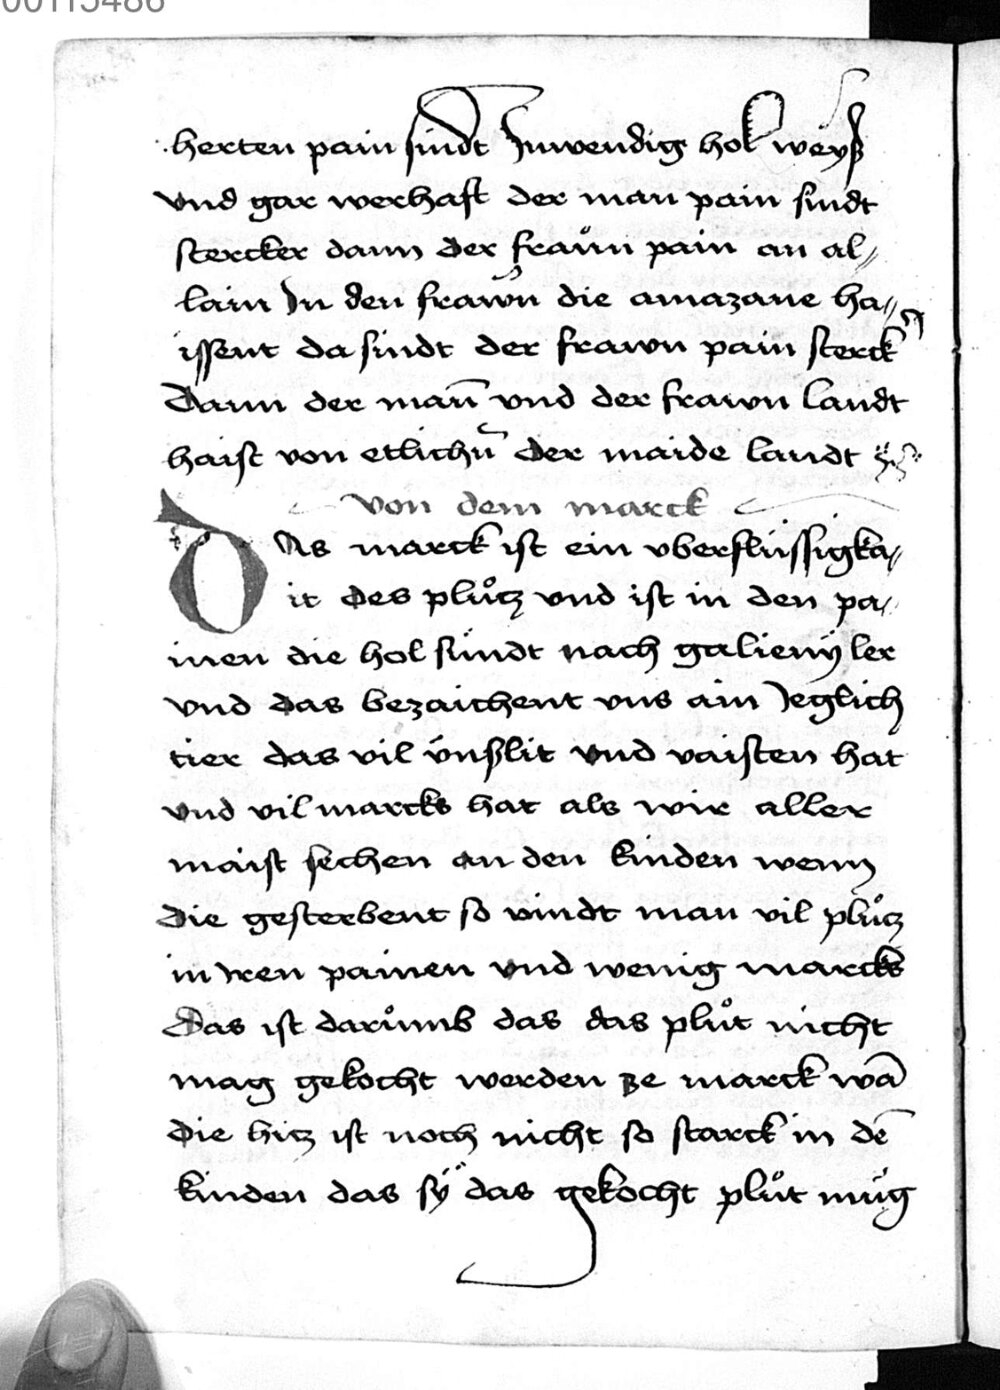 00115486
herten pain sindt Inwendig hol weyß
vnd gar werhaft der man pain sindt
stercker dann der fraün pain an al⸗
lain In den frawn die amazane ha⸗
issent da sindt der frawn pain sterck
Dann der man̄ vnd der frawn landt
haist von etlichn̄ der maide landt
von dem marck
DAs marck ist ein vberflüssigka⸗
it des plůtz vnd ist in den pa⸗
inen die hol sindt nach galienÿ ler
vnd das bezaichent vns ain Jeglich
tier das vil vnßlit vnd vaisten hat
vnd vil marcks hat als wir aller
maist sechen an den kinden wenn
die gesterbent so vindt man vil plůtz
in Iren painen vnd wenig marcks
Das ist darůmb das das plůt nicht
mag gekocht werden ze marck wā
die hitz ist noch nicht so starck in dē
kinden das sÿ das gekocht plůt müg